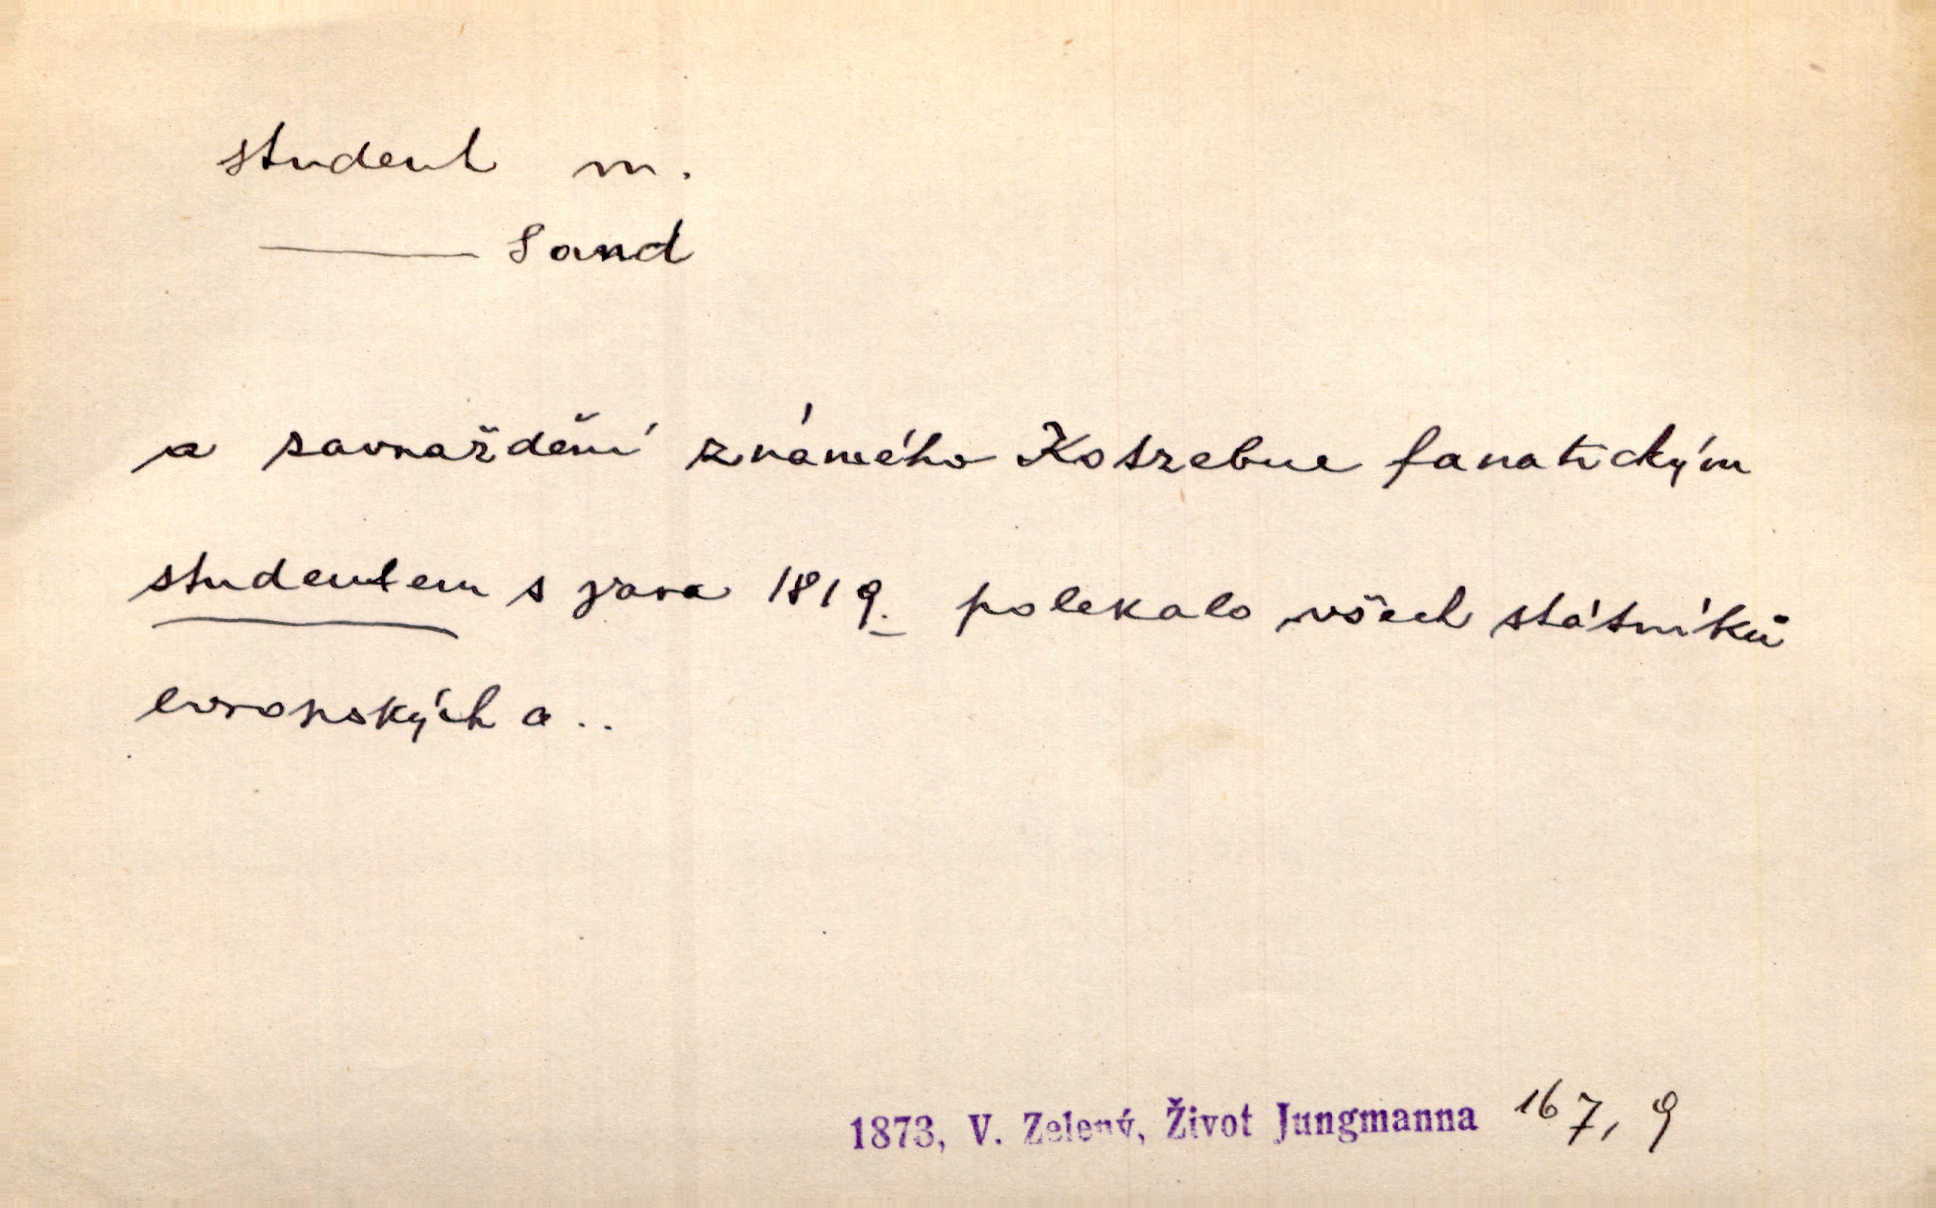 student m.
——— Sand
a zavraždění známého Kotzebue fanatickým
studentem s jara 1819. polekalo všech státníků
evropských a ..
1873, V. Zelený, Život Jungmanna 167, 9